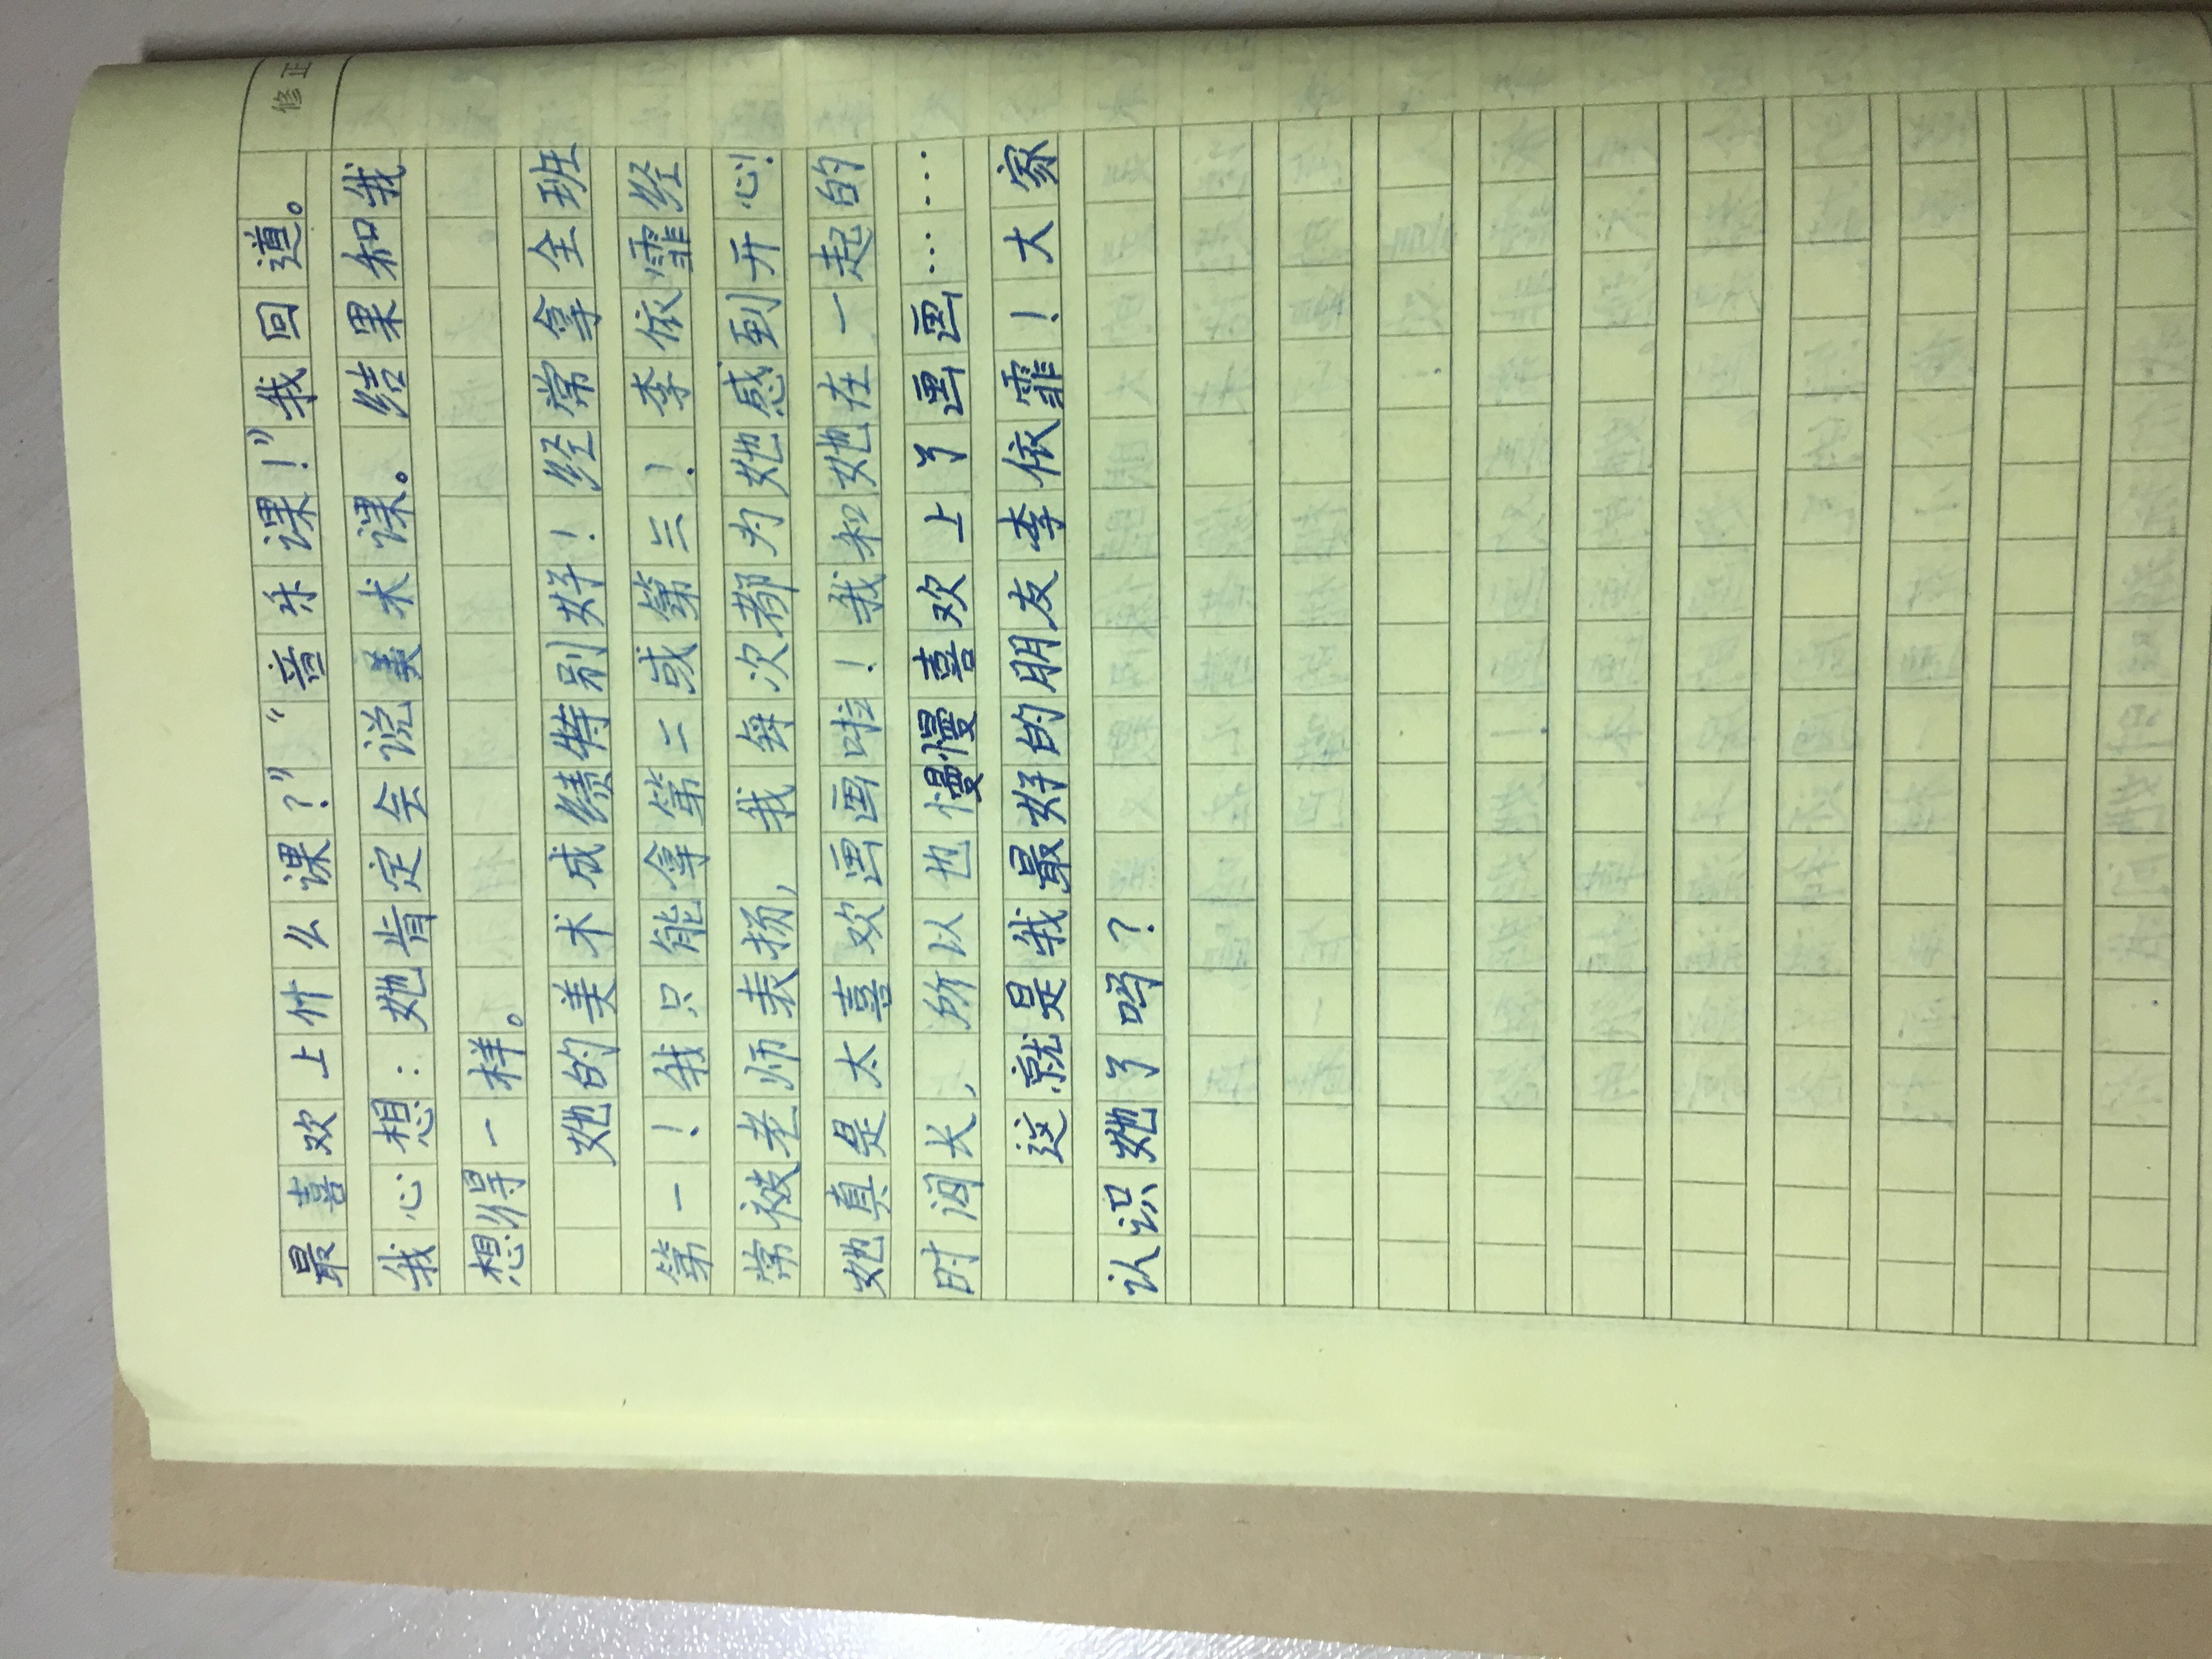 修正
最喜欢上什么课？”“音乐课！”我回道。
我心想：她肯定会说美术课。结果和我
想得一样。
她的美术成绩特别好！经常拿全班
第一！我只能拿第二或第三！李依霏经
常被老师表扬，我每次都为她感到开心！
她真是太喜欢画画啦！我和她在一起的
时间长，所以也慢慢喜欢上了画画……
这就是我最好的朋友李依霏！大家
认识她了吗？